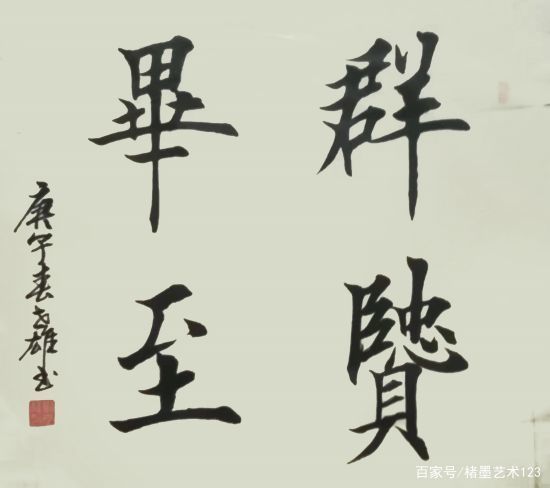 群贒
畢至
庚午春雄书
百家号/楮墨艺术123